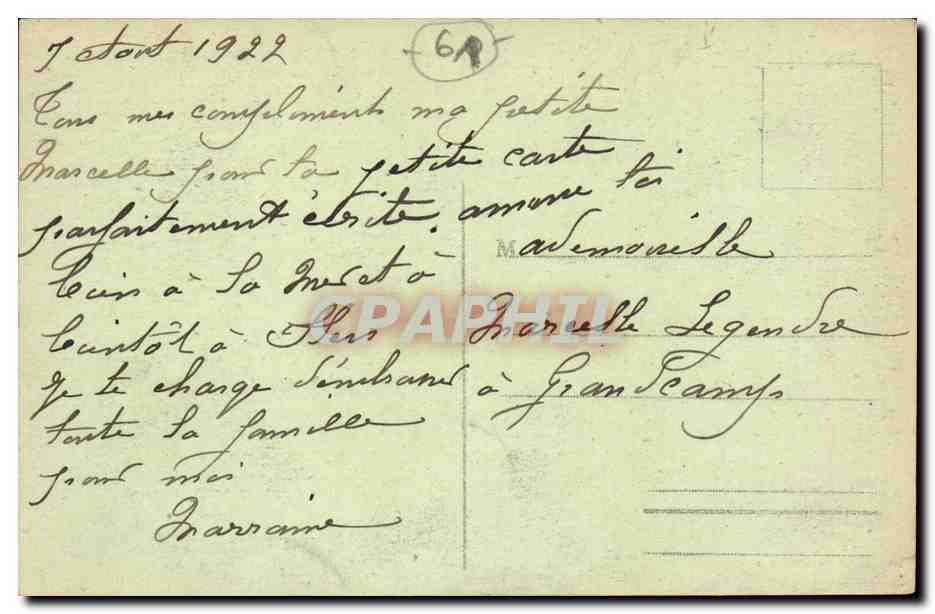 7 Aout 1922
6A
Tous mes compliments ma petite
Marcelle pour ta petite carte
parfaitement écrite. amuse toi
bien à la mer et à
bientôt à Flers
Je te charge d'embrasser
toute la famille
pour moi
Marraine
Mademoiselle
Marcelle Legendre
à Grandcamp
CPAPHIL